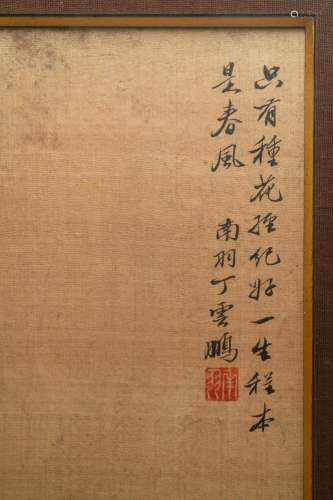 只有種花經紀好一生程本
是春風
南羽丁雲鵬